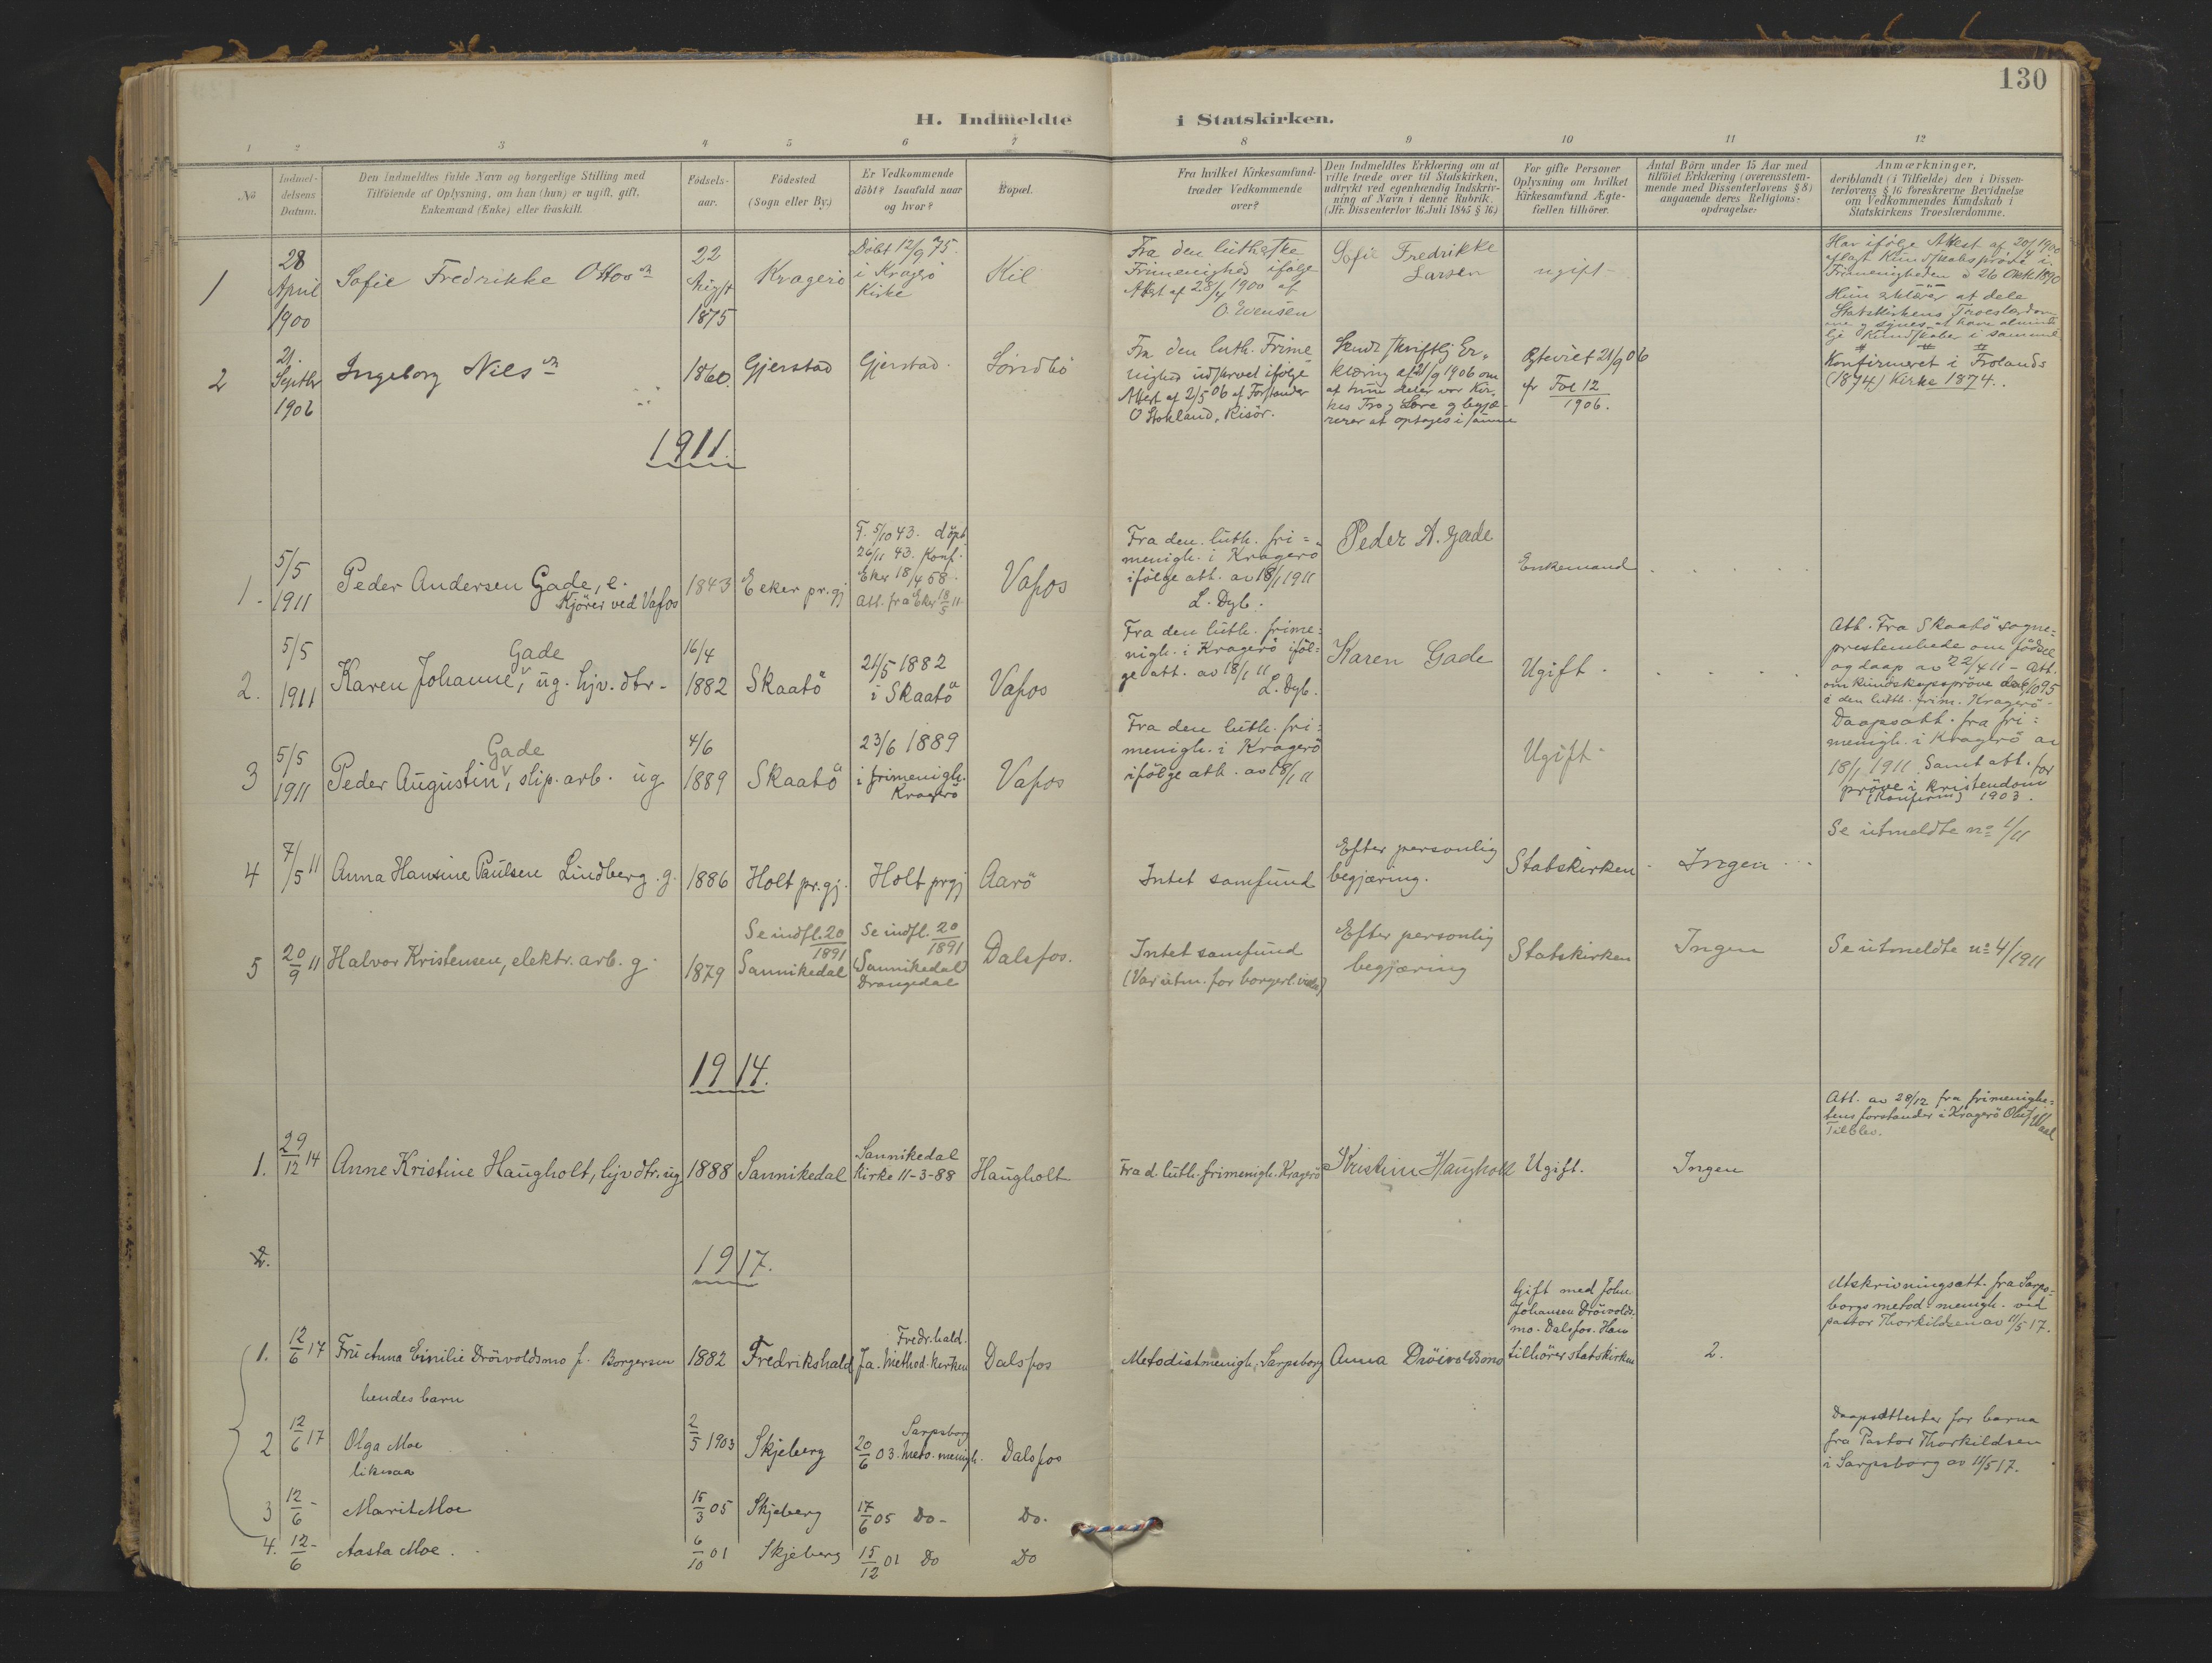 130
H. Indmeldte i Statskirken.
1 2 3 4 5 6 7 8 9 10 11 12
No
Indmel-
delsens
Datum.
Den Indmeldtes fulde Navn og borgerlige Stilling med
Tilföiende af Oplysning, om han (hun) er ugift, gift,
Enkemand (Enke) eller fraskilt.
Födsels-
aar.
Födested
(Sogn eller By.)
Er Vedkommende
döbt? Isaafald naar
og hvor?
Bopæl.
Fra hvilket Kirkesamfund
træder Vedkommende
over?
Den Indmeldtes Erklæring om at
ville træde over til Statskirken,
udtrykt ved egenhændig Indskriv-
ning af Navn i denne Rubrik.
(Jfr. Dissenterlov 16. Juli 1845 § 16)
For gifte Personer
Oplysning om hvilket
Kirkesamfund Ægte-
fællen tilhörer.
Antal Börn under 15 Aar med
tilföiet Erklæring (overensstem-
mende med Dissenterlovens § 8)
angaaende deres Religions-
opdragelse:
Anmærkninger,
deriblandt (i Tilfælde) den i Dissen-
terlovens § 16 foreskrevne Bevidnelse
om Vedkommendes Kundskab i
Statskirkens Troeslærdomme.
1
28
April
1900
Sofie Fredrikke
22
August
1875
Kragerö
Döbt 12/9 75.
i Kragerö
Kirke
Kil
Fra den lutherske
Frimenighed ifölge
Attest af 28/4 1900 af
Sofie Fredrikke
Larsen
ugift
Har ifölge Attest af 20/4 1900
aflagt Kundskabspröve i
Frimenigheden d 26 Oktb. 1890
Hun erklærer at dele
Statskirkens Troeslærdom-
me og synes at have alminde-
lig Kundskaber i samme
2
21.
Septbr
1906
Ingeborg Nils
1860.
Gjerstad
Gjerstad
Söndbö
Fra den luth. Frime-
nighed udskrevet ifölge
Attest af 2/5 06 af Forstander
O Stokland, Risör.
Sendt skriftlig Er-
klæring af 21/9 1906 om
at hun deler vor Kir-
kes Tro og Lære og begjæ-
rer at optages i samme
Ægteviet 21/9 06
12
1906.
Konfirmeret i Frolands
(1874) Kirke 1874.
1911.
1.
5/5
1911
Peder Andersen Gade, e.
Kjörer ved Vafos
1843
Eker pr.gj
F. 5/10 43. döpt
26/11 43. Konf.
Eker 18/4 58.
Att. fra Eker 18/5 11
Vafos
Fra den luth. fri=
menigh. i Kragerö
ifölge att. av 18/1 1911
L. Dyb.
Peder A. Gade
Enkemand
2.
5/5
1911
Gade
Karen Johanne, ug. hjv. dtr.
16/4
1882
Skaatö
21/5 1882
i Skaatö
Vafos
Fra den luth. frime=
nigh. i Kragerö iföl=
ge att. av 18/1 11
L. Dyb.
Karen Gade
Ugift
Att. Fra Skaatö sogne=
prestembede om födsel
og daap av 22/4 11 - Att.
om kundskapspröve 6/10 95
i den luth. frim. Kragerö
3
5/5
1911
Gade
Peder Augustin, slip. arb. ug
4/6
1889
Skaatö
23/6 1889
i frimenigh.
Kragerö
Vafos
Fra den luth. fri=
menigh. i Kragerö
ifölge att. av 18/1 11
Ugift
Daapsatt. fra fri=
menigh. i Kragerö av
18/1 1911. Samt att. for
pröve i kristendom
(Konfirm) 1903.
4
7/5 11
Anna Hansine Paulsen Lindberg. g.
1886
Holt pr.gj.
Holt prgj
Aarö
Intet samfund
Efter personlig
begjæring.
Statskirken
Ingen
Se utmeldte no 1/11
5
20/9 11
Halvor Kristensen, elektr. arb. g.
1879
Se indfl. 20/1891
Sannikedal
Se indfl. 20/1891
(Sannikedal)
Drangedal
Dalsfos.
Intet samfund
(Var utm. for borgerl. vielse)
Efter personlig
begjæring
Statskirken
Ingen
Se utmeldte no 4/1911
1914.
1.
29/12 14
Anne Kristine Haugholt, hjv dtr. ug
1888
Sannikedal
Sannikedal
Kirke 11-3-88
Haugholt
Fra d. luth. frimenigh. Kragerö
Kristine Haugholt
Ugift.
Ingen
Att. av 28/12 fra frimenighe=
tens forstander i Kragerö Oluf Waal
2.
1917.
1.
12/6 17
Fru Anna Emilie Dröivoldsmo f. Borgersen
1882
Fredrikshald
Fredr.hald.
Ja. Method. kirken
Dalsfos
Metodistmenigh, Sarpsborg
Anna Dröivoldsmo
Gift med John
Johansen Dröivolds-
mo. Dalsfos. Han
tilhörer statskirken
2.
Utskrivningsatt. fra Sarps-
borgs metod. menigh. ved
pastor Thorkildsen av 11/5 17.
hendes barn
2
12/6 17
Olga Moe
likesaa
2/5 1903
Skjeberg
Sarpsborg
20/6 03. Meto. menigh.
Dalsfos
Daapsattester for barna
fra Pastor Thorkildsen
i Sarpsborg av 11/5 17.
3
12/6 -
Marit Moe
15/3 05
Skjeberg
17/6 05 Do -
Do.
4.
12/6 -
Aasta Moe.
6/10 01
Skjeberg
15/12 01 Do
Do